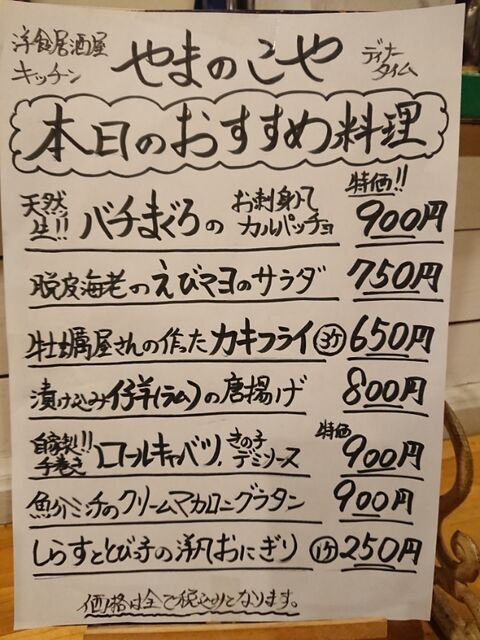 洋食居酒屋
キッチン
やまのこや
ディナー
タイム
本日のおすすめ料理
天然
生!!
バチまぐろの
お刺身 カルパッチョ
特価!!
900円
脱皮海老のえびマヨのサラダ 750円
牡蠣屋さんの作ったカキフライ 3ケ 650円
漬け込み仔羊(ラム)の唐揚げ 800円
自家製!!
手巻き
ロールキャベツ、
きの子
デミソース
特価
900円
魚介ミンチのクリームマカロニグラタン 900円
しらすととび子の洋風おにぎり 1ケ 250円
価格は全て税込りとなります。